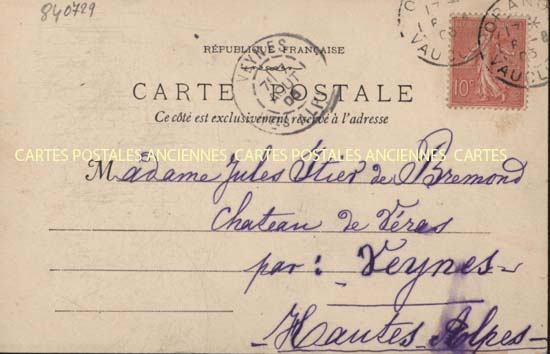 840729
RÉPUBLIQUE FRANÇAISE
CARTE POSTALE
Ce côté est exclusivement réservé à l'adresse
CARTES POSTALES ANCIENNES CARTES POSTALES ANCIENNES CARTES
Madame Jules Itier de Bremond
Chateau de Véras
par : Veynes
Hautes-Alpes
VEYNES
AOUT
05
ORANGE
17
05
VAUCL
10